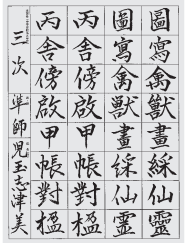 圖寫禽獸畫綵仙靈
圖寫禽獸畫綵仙靈
丙舍傍啟甲帳對楹
丙舍傍啟甲帳對楹
三次 準師 児玉志津美